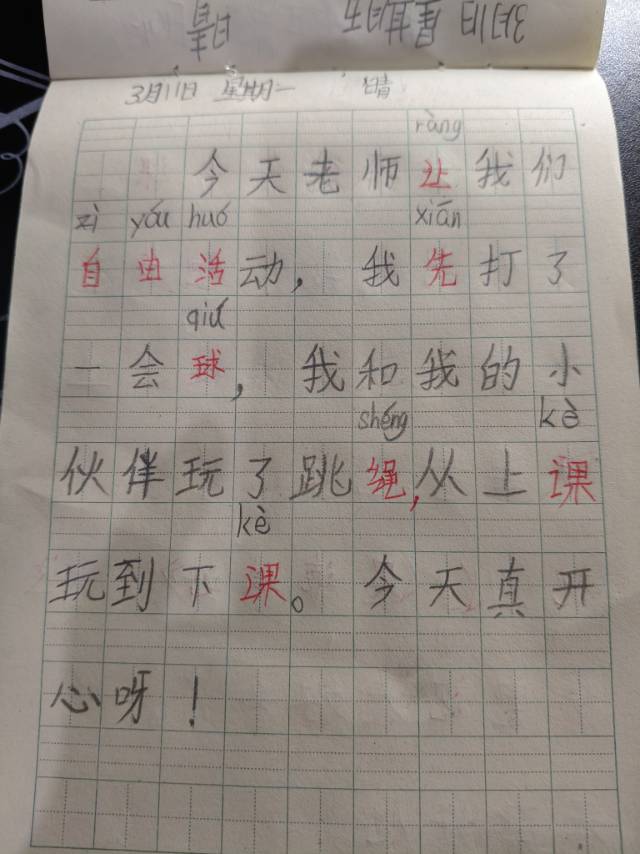 3月11日 星期一 晴
ràng
今天老师让我们
zì yóu huó xiān
自由活动，我先打了
qiú
一会球，我和我的小
shéng kè
伙伴玩了跳绳，从上课
kè
玩到下课。今天真开
心呀！